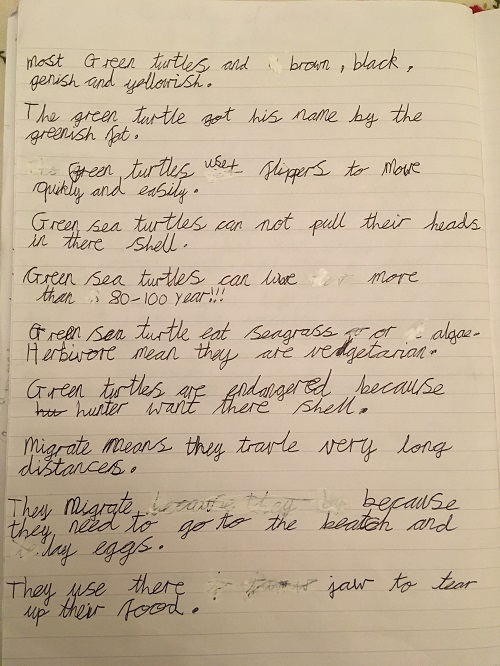 most Green turtles and brown, black,
genish and yellowish.
The green turtle got his name by the
greenish fat.
Green turtles uset flippers to move
quikly and easily.
Green sea turtles can not pull their heads
in there shell.
Green sea turtles can live more
than 80-100 year!!!
Green sea turtle eat seagrass or algae.
Herbivore mean they are vegetarian.
Green turtles are endangered because
hunter want there shell.
Migrate means they travle very long
distances.
They Migrate because
they need to go to the beatch and
lay eggs.
They use there jaw to tear
up their food.